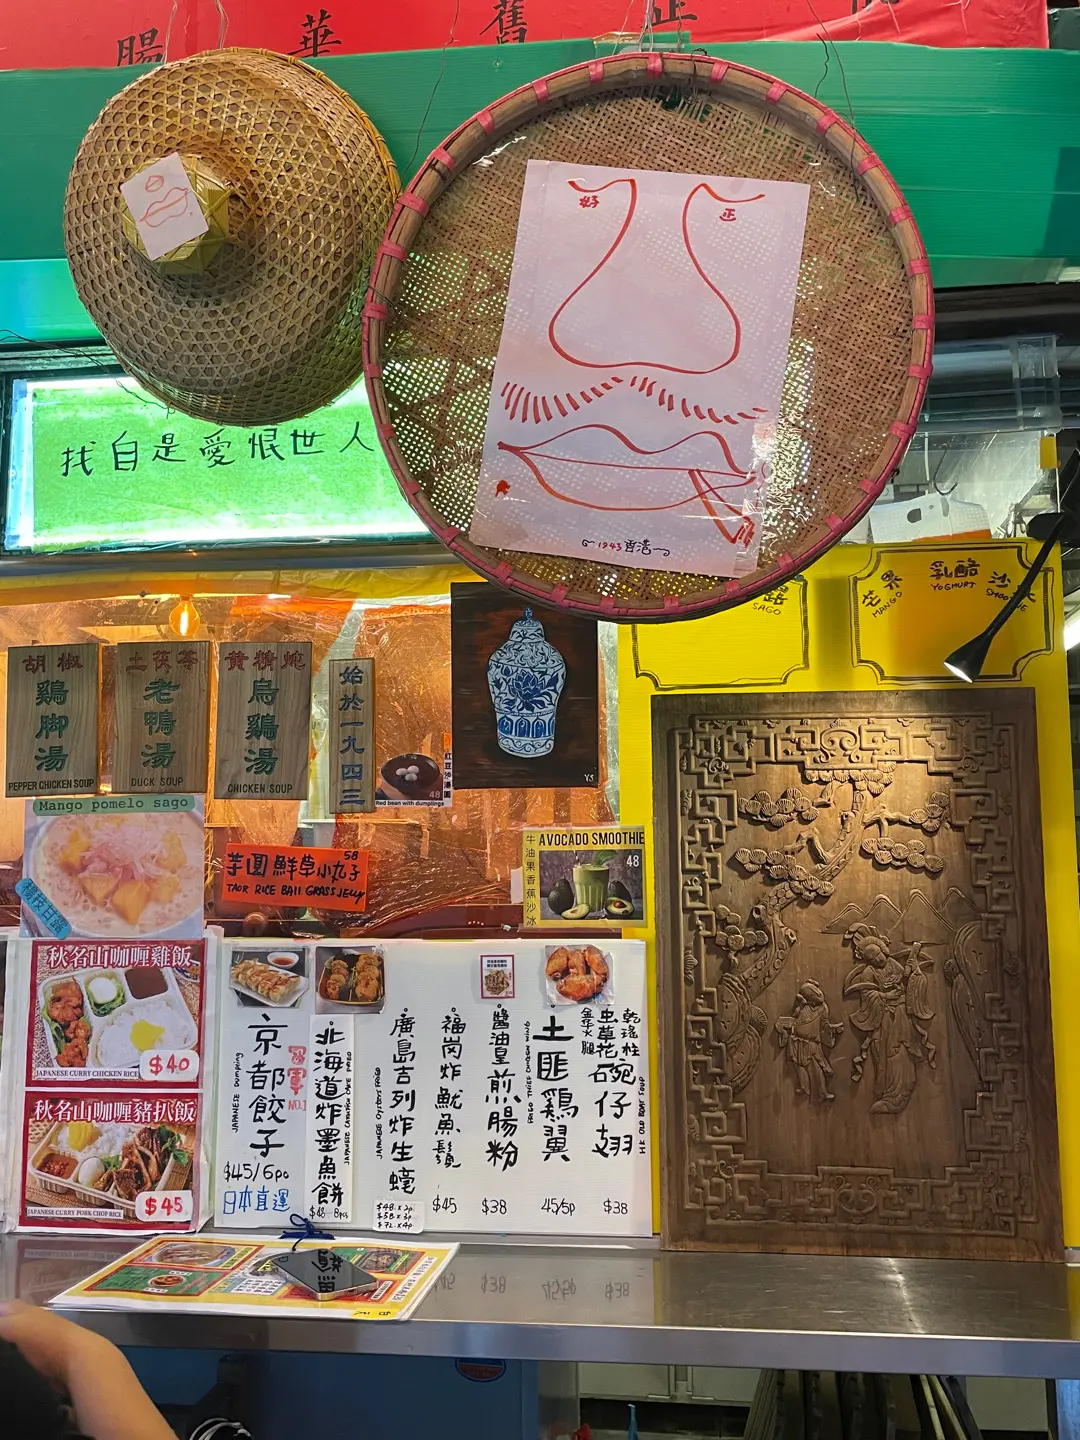 腸
華
舊
正
好
正
1943
找自是愛恨世人
胡椒
鷄脚湯
PEPPER CHICKEN SOUP
土茯苓
老鴨湯
DUCK SOUP
黄精
烏鷄湯
CHICKEN SOUP
始於一九四三
紅豆沙湯圓
48
Red bean with dumplings
露
SAGO
芒果
乳酪
沙冰
MANGO
YOGHURT
SMOOTHIE
Mango pomelo sago
楊枝甘露
芋圓鮮草小丸子
58
TAOR RICE BAll GRASS JELLY
牛油果香蕉沙冰
AVOCADO SMOOTHIE
48
YS
秋名山咖喱雞飯
JAPANESE CURRY CHICKEN RICE
$40
秋名山咖喱豬扒飯
JAPANESE CURRY PORK CHOP RICE
$45
京都餃子
JAPANESE Dumpling
冠軍
NO.1
$45/6pc
日本直運
北海道炸墨魚餅
$48 8pcs
廣島吉列炸生蠔
JAPANESE OYSTERS FRIED
$48.x2p
$58.x3p
$72.x4p
福岡炸魷魚鬚
$45
醬油皇煎腸粉
$38
土匪鷄翼
45/5p
乾瑤柱
虫草花
金华火腿
碗仔翅
HK OLD BOAT SOUP
$38